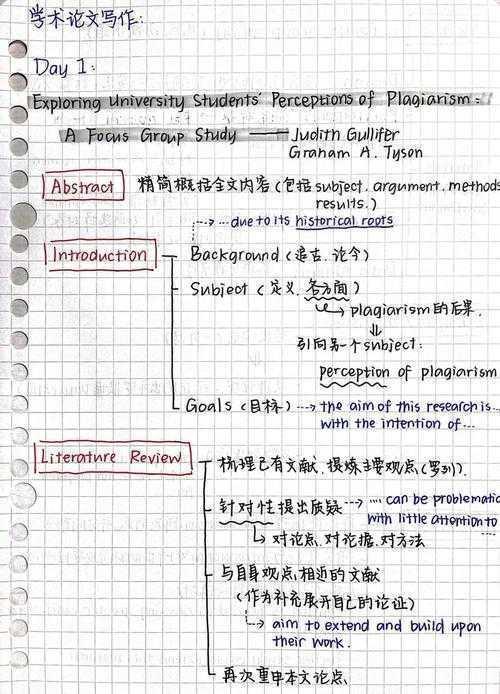 学术论文写作:
Day 1:
Exploring University Students' Perceptions of Plagiarism:
A Focus Group Study —— Judith Gullifer
Graham A. Tyson
Abstract 精简概括全文内容(包括subject. argument. methods
results.)
...due to its historical roots
Introduction Background (追古. 论今)
Subject (定义. 各方面)
plagiarism 的后果.
引向另一个subject:
perception of plagiarism
Goals (目标) the aim of this research is...
with the intention of...
Literature Review 梳理已有文献. 提炼主要观点(罗列).
针对性提出质疑 ... can be problematic
with little attention to
对论点. 对论据. 对方法
与自身观点相近的文献
(作为补充展开自己的论证)
aim to extend and build upon
their work.
再次重申本文论点.